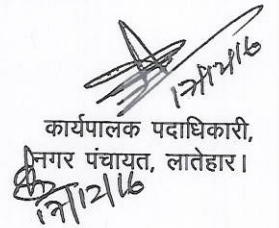 17/12/16
कार्यपालक पदाधिकारी,
नगर पंचायत, लातेहार।
17/12/16